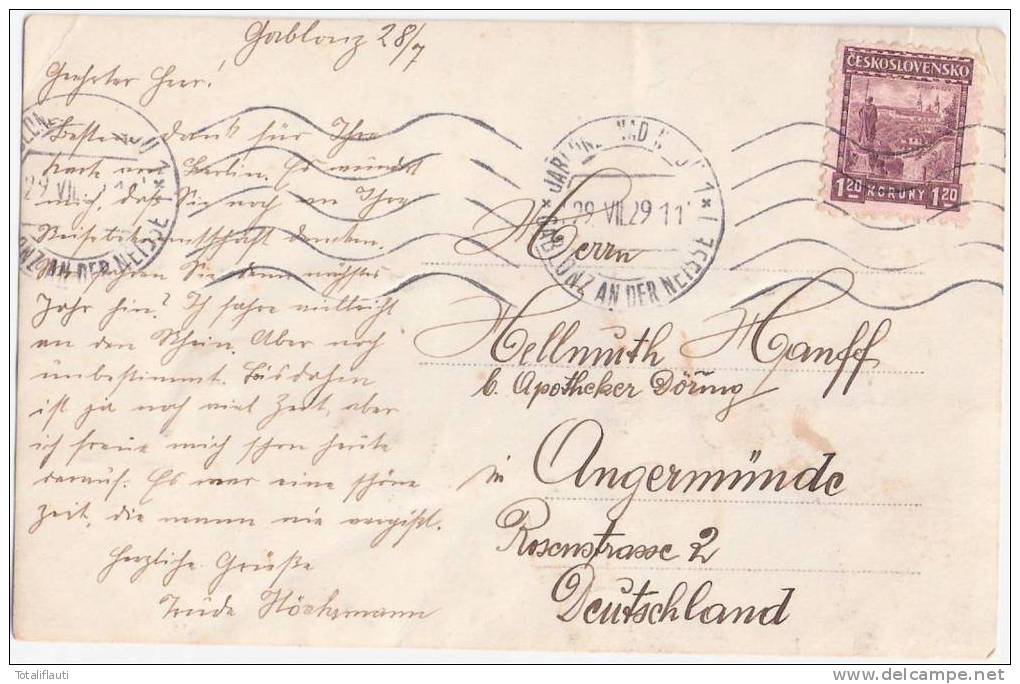 Gablonz 28/7
Geehrter Herr!
Besten dank für Ihre
Karte von Berlin. Es wundert
mich, daß Sie noch an Ihre
Reisebekanntschaft denken.
Sie denn nächstes
Jahr hin? Ich fahre vielleicht
an den Rhein. Aber noch
unbestimmt. Bis dahin
ist ja noch viel Zeit, aber
ich freue mich schon heute
darauf. Es war eine schöne
Zeit, die mann nie vergißt.
Herzliche Grüße
Trude
Herrn
Hellmuth Hanff
b. Apotheker Döring
in Angermünde
Rosenstrasse 2
Deutschland
JABLONEC NAD NISOU 1
29.VII.29 11
GABLONZ AN DER NEISSE
ČESKOSLOVENSKO
1.20 KORUNY 1.20
Totaliflauti
www.delcampe.net